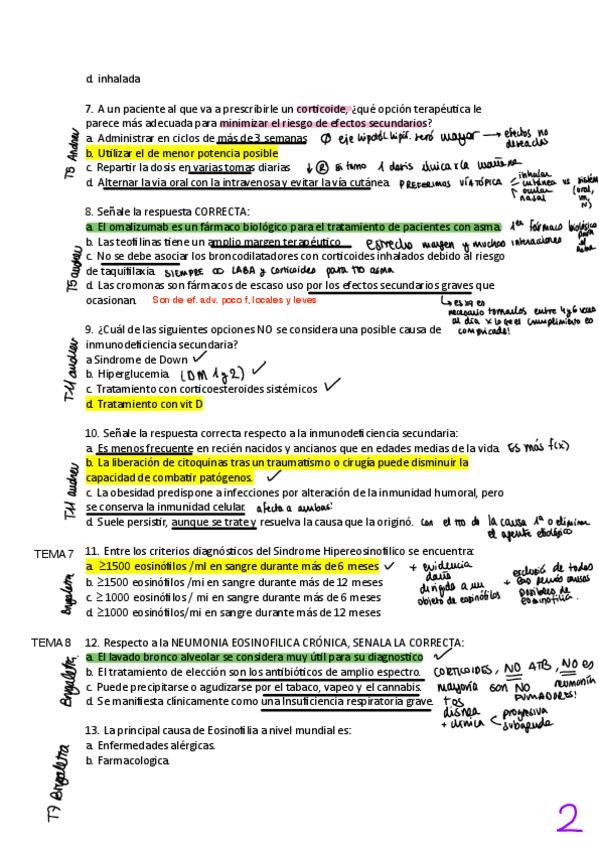 d. inhalada
7. A un paciente al que va a prescribirle un corticoide, ¿qué opción terapéutica le
parece más adecuada para minimizar el riesgo de efectos secundarios?
a. Administrar en ciclos de más de 3 semanas Ø eje hipotál. hipóf. será mayor → efectos no deseados
b. Utilizar el de menor potencia posible
c. Repartir la dosis en varias tomas diarias ↓ R si tomo 1 dosis única x la mañana
d. Alternar la via oral con la intravenosa y evitar la vía cutánea. PREFERIMOS VÍA TÓPICA inhalar cutánea ocular nasal vs
T5 Andreu
8. Señale la respuesta CORRECTA:
a. El omalizumab es un fármaco biológico para el tratamiento de pacientes con asma. 1er fármaco biológico para el asma
b. Las teofilinas tiene un amplio margen terapéutico. estrecho margen y muchas interacciones
c. No se debe asociar los broncodilatadores con corticoides inhalados debido al riesgo
de taquifilaxia. SIEMPRE LABA y corticoides para tto asma
d. Las cromonas son fármacos de escaso uso por los efectos secundarios graves que
ocasionan. Son de ef. adv. poco f, locales y leves
↳ es xq es necesario tomarlos entre 4 y 6 veces al día x lo q el cumplimiento es complicado!
T5 andreu
9. ¿Cuál de las siguientes opciones NO se considera una posible causa de
inmunodeficiencia secundaria?
a Sindrome de Down ✓
b. Hiperglucemia. (DM 1 y 2) ✓
c. Tratamiento con corticoesteroides sistémicos ✓
d. Tratamiento con vit D
T11 andreu
10. Señale la respuesta correcta respecto a la inmunodeficiencia secundaria:
a. Es menos frecuente en recién nacidos y ancianos que en edades medias de la vida. Es más f(x)
b. La liberación de citoquinas tras un traumatismo o cirugía puede disminuir la
capacidad de combatir patógenos. ✓
c. La obesidad predispone a infecciones por alteración de la inmunidad humoral, pero
se conserva la inmunidad celular. afecta a ambas!
d. Suele persistir, aunque se trate y resuelva la causa que la originó. con el tto de la causa 1ª o elimino el agente etiológico
T11 andreu
TEMA 7
11. Entre los criterios diagnósticos del Sindrome Hipereosinofilico se encuentra:
a. ≥1500 eosinófilos /ml en sangre durante más de 6 meses ✓ + evidencia daño dirigido a un objeto de eosinófilos + exclusión de todas las demás causas posibles de eosinofilia.
b. ≥1500 eosinófilos /mi en sangre durante más de 12 meses
c. ≥ 1000 eosinófilos / mi en sangre durante más de 6 meses
d. ≥1000 eosinófilos/mi en sangre durante más de 12 meses
Bragaleta
TEMA 8
12. Respecto a la NEUMONIA EOSINOFILICA CRÓNICA, SENALA LA CORRECTA:
a. El lavado bronco alveolar se considera muy útil para su diagnostico ✓
b. El tratamiento de elección son los antibióticos de amplio espectro. CORTICOIDES, NO ATB, NO es neumonía
c. Puede precipitarse o agudizarse por el tabaco, vapeo y el cannabis. mayoría son NO FUMADORES!
d. Se manifiesta clinicamente como una Insuficiencia respiratoria grave. tos disnea + clínica progresiva subaguda
Bragaleta.
13. La principal causa de Eosinofilia a nivel mundial es:
a. Enfermedades alérgicas.
b. Farmacologica.
T7 Bragaleta
2